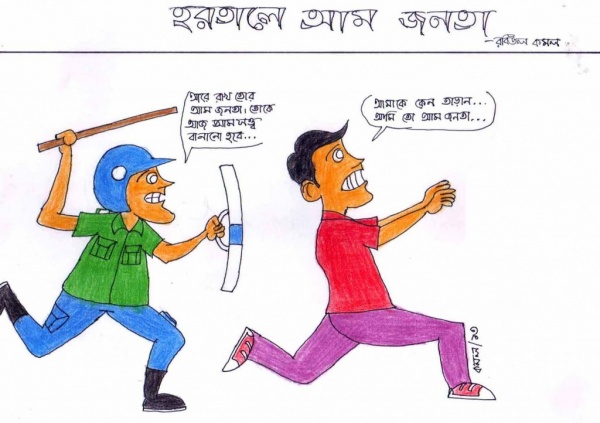 হরতালে আম জনতা
-রবিউল কমল
আরে রাখ তোর
আম জনতা। তোকে
আজ আমসত্ত্ব
বানানো হবে...
আমাকে কেন তাড়ান...
আমি তো আম জনতা...
কমল/১৩